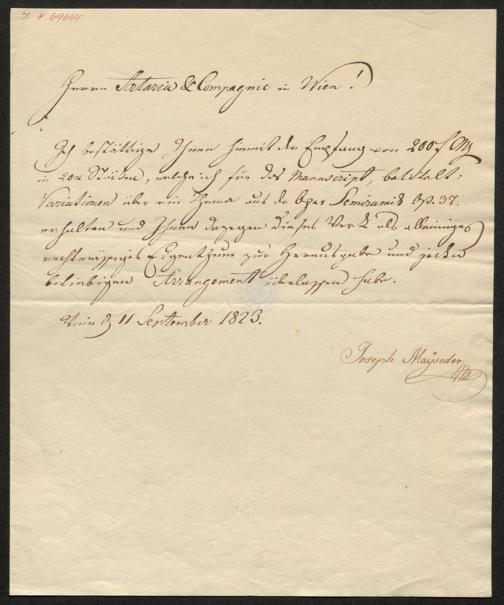 J. N. 69664
Herrn Artaria & Compagnie in Wien!
Ich bestättige Ihnen hiemit den Empfang von 200 f CMz
in 20er Stücken, welche ich für das Manuscript, betitelt:
Variationen über ein Thema aus der Oper Semiramis Op. 37.
erhalten und Ihnen dagegen dieses Werk als alleiniges
rechtmässiges Eigenthum zur Herausgabe und jeden
beliebigen Arrangement überlassen habe.
Wien d 11 September 1823.
Joseph Mayseder